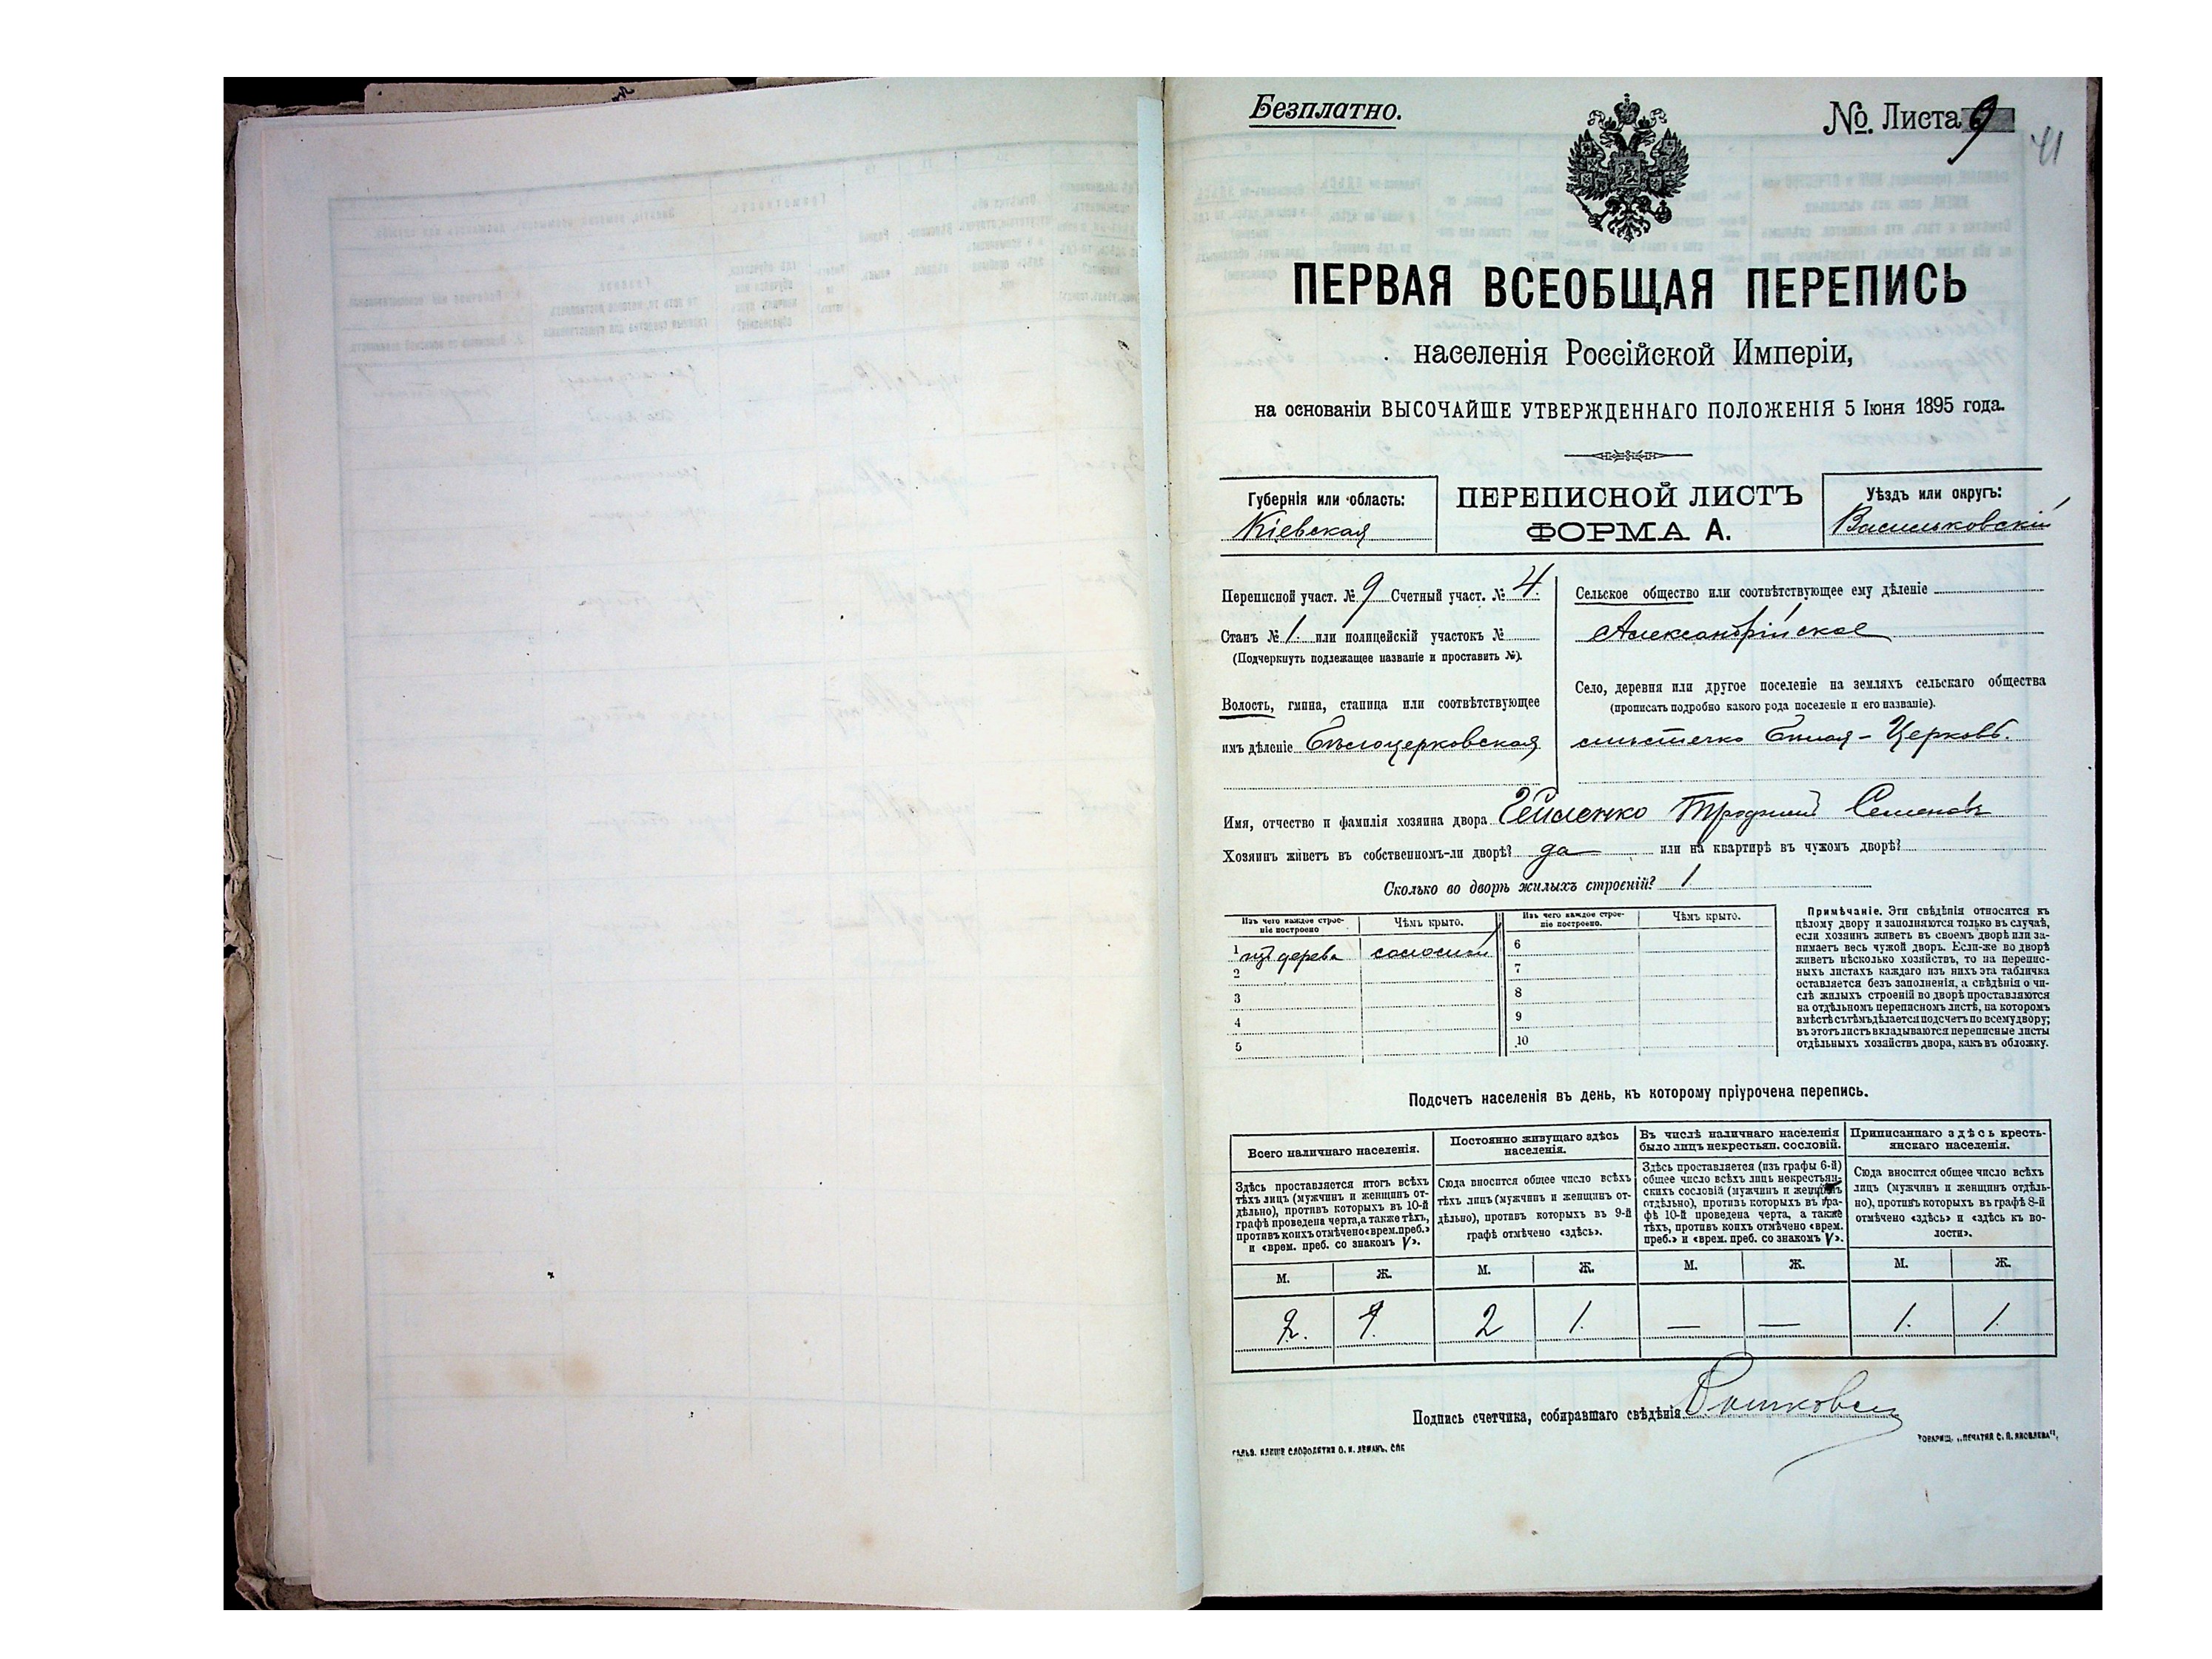 Безплатно.
№. Листа 9
41
ПЕРВАЯ ВСЕОБЩАЯ ПЕРЕПИСЬ
населенія Россійской Имперіи,
на основаніи ВЫСОЧАЙШЕ УТВЕРЖДЕННАГО ПОЛОЖЕНІЯ 5 Іюня 1895 года.
Губернія или область:
Кіевская
ПЕРЕПИСНОЙ ЛИСТЪ
ФОРМА А.
Уѣздъ или округъ:
Васильковскій
Переписной участ. № 9 Счетный участ. № 4.
Станъ № 1. или полицейскій участокъ №
(Подчеркнуть подлежащее названіе и проставить №).
Волость, гмина, станица или соотвѣтствующее
имъ дѣленіе Бѣлоцерковская
Сельское общество или соотвѣтствующее ему дѣленіе
Александрійское
Село, деревня или другое поселеніе на земляхъ сельскаго общества
(прописать подробно какого рода поселеніе и его названіе).
мѣстечко Бѣлая-Церковь.
Имя, отчество и фамилія хозяина двора Семенов
Хозяинъ живетъ въ собственномъ-ли дворѣ? да или на квартирѣ въ чужомъ дворѣ?
Сколько во дворѣ жилыхъ строеній? 1
Изъ чего каждое строе-
ніе построено
Чѣмъ крыто.
Изъ чего каждое строе-
ніе построено.
Чѣмъ крыто.
1 изъ дерева соломой
2
3
4
5
6
7
8
9
10
Примѣчаніе. Эти свѣдѣнія относятся къ
цѣлому двору и заполняются только въ случаѣ,
если хозяинъ живетъ въ своемъ дворѣ или за-
нимаетъ весь чужой дворъ. Если-же во дворѣ
живетъ нѣсколько хозяйствъ, то на перепис-
ныхъ листахъ каждаго изъ нихъ эта табличка
оставляется безъ заполненія, а свѣдѣнія о чи-
слѣ жилыхъ строеній во дворѣ проставляются
на отдѣльномъ переписномъ листѣ, на которомъ
вмѣстѣ съ тѣмъ дѣлается подсчетъ по всему двору;
въ этотъ листъ вкладываются переписные листы
отдѣльныхъ хозяйствъ двора, какъ въ обложку.
Подсчетъ населенія въ день, къ которому пріурочена перепись.
Всего наличнаго населенія.
Здѣсь проставляется итогъ всѣхъ
тѣхъ лицъ (мужчинъ и женщинъ от-
дѣльно), противъ которыхъ въ 10-й
графѣ проведена черта, а также тѣхъ,
противъ коихъ отмѣчено «врем. преб.»
и «врем. преб. со знакомъ V».
Постоянно живущаго здѣсь
населенія.
Сюда вносится общее число всѣхъ
тѣхъ лицъ (мужчинъ и женщинъ от-
дѣльно), противъ которыхъ въ 9-й
графѣ отмѣчено «здѣсь».
Въ числѣ наличнаго населенія
было лицъ некрестьян. сословій.
Здѣсь проставляется (изъ графы 6-й)
общее число всѣхъ лицъ некрестьян-
скихъ сословій (мужчинъ и женщинъ
отдѣльно), противъ которыхъ въ гра-
фѣ 10-й проведена черта, а также
тѣхъ, противъ коихъ отмѣчено «врем.
преб.» и «врем. преб. со знакомъ V».
Приписаннаго здѣсь кресть-
янскаго населенія.
Сюда вносится общее число всѣхъ
лицъ (мужчинъ и женщинъ отдѣль-
но), противъ которыхъ въ графѣ 8-й
отмѣчено «здѣсь» и «здѣсь къ во-
лости».
М. Ж. М. Ж. М. Ж. М. Ж.
2. 1. 2 1. — — 1. 1.
Подпись счетчика, собиравшаго свѣдѣнія
ТОВАРИЩ. „ПЕЧАТНЯ С. П. ЯКОВЛЕВА“,